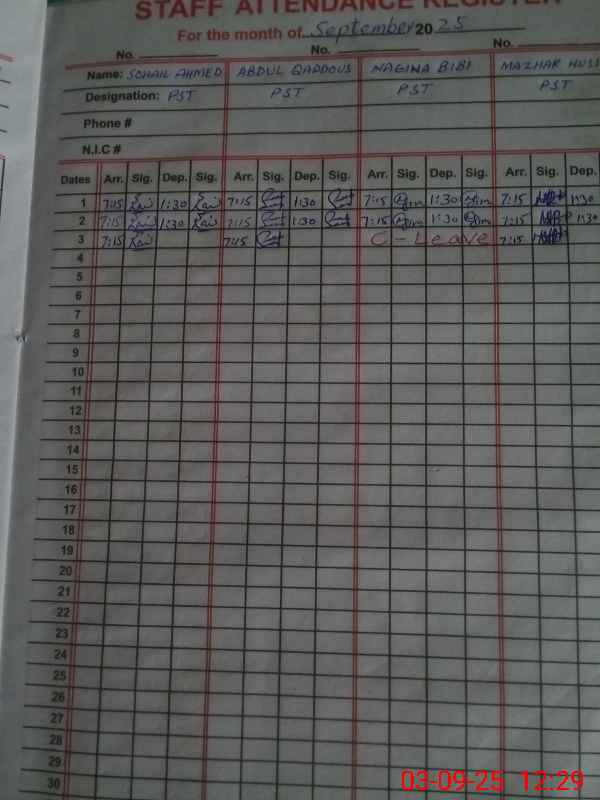 STAFF ATTENDANCE REGISTER
For the month of September 2025
No. No. No.
Name: SOHAIL AHMED ABDUL QADDOUS NAGINA BIBI MAZHAR HUSS
Designation: PST PST PST PST
Phone #
N.I.C #
Dates Arr. Sig. Dep. Sig. Arr. Sig. Dep. Sig. Arr. Sig. Dep. Sig. Arr. Sig. Dep.
1 7:15 1:30 7:15 1:30 7:15 1:30 7:15 1:30
2 7:15 1:30 7:15 1:30 7:15 1:30 7:15 1:30
3 7:15 7:15 C - Leave 7:15
4
5
6
7
8
9
10
11
12
13
14
15
16
17
18
19
20
21
22
23
24
25
26
27
28
29
30
03-09-25 12:29